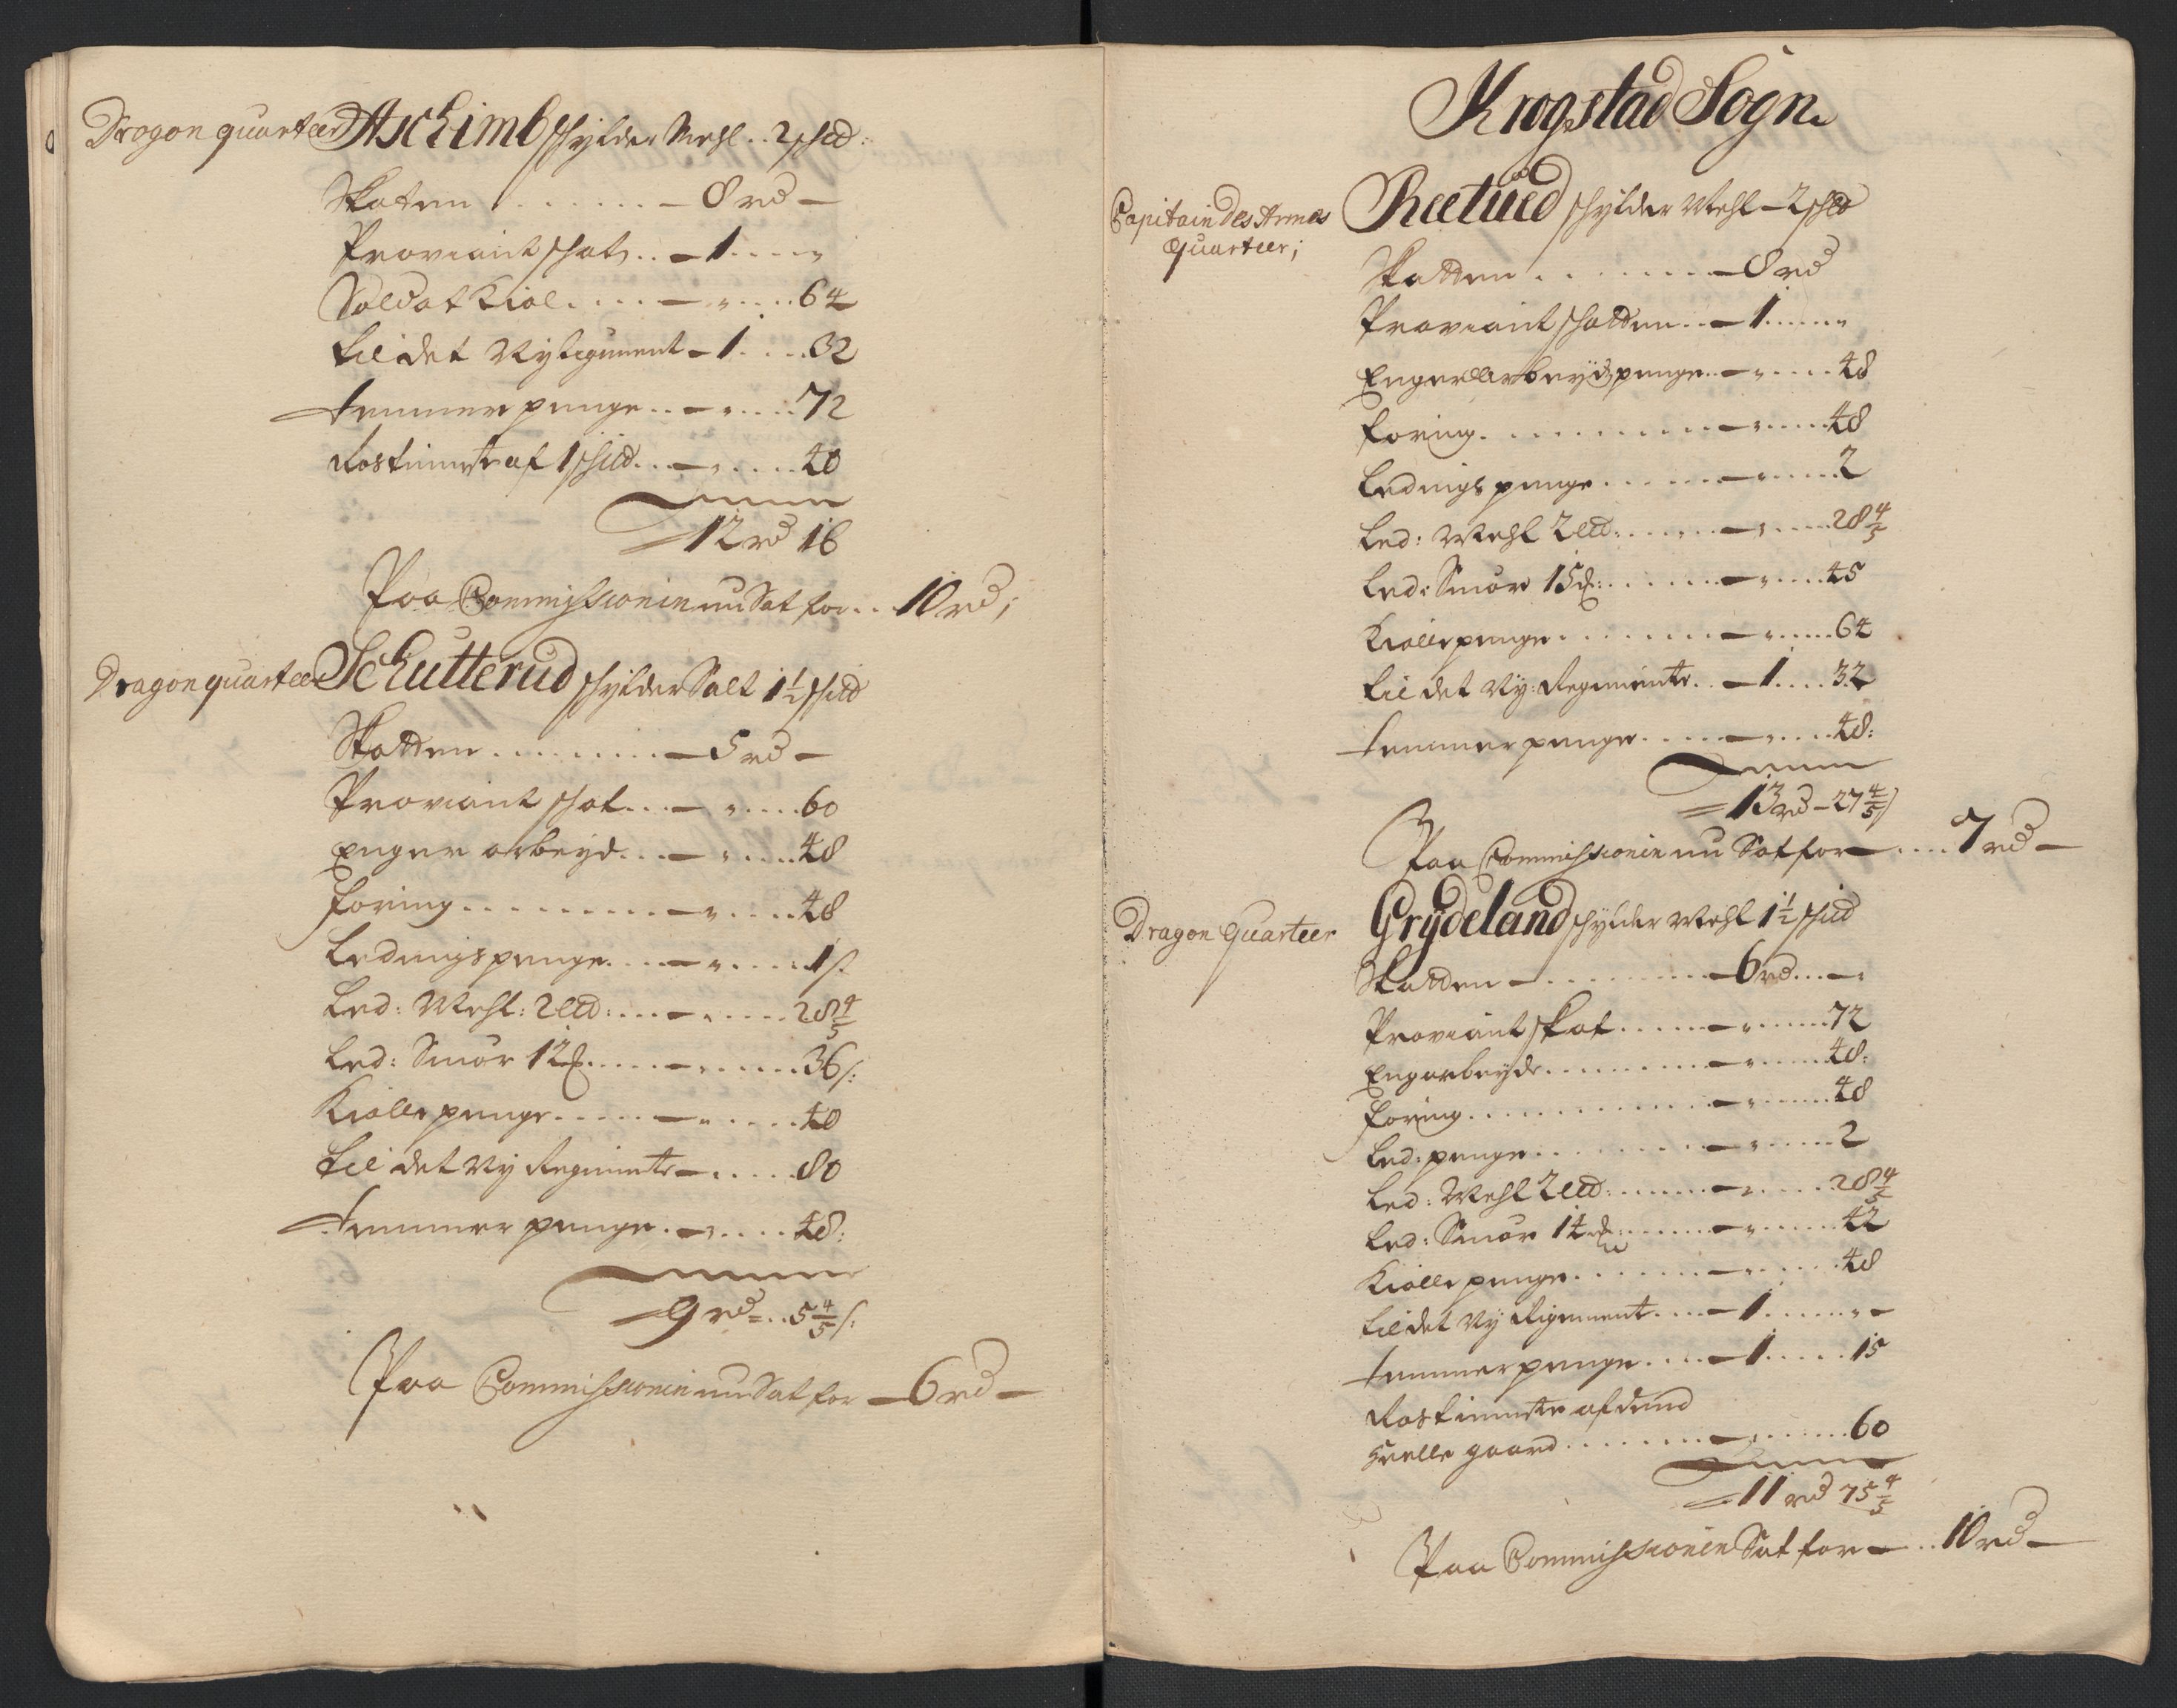 Dragon quarteer Aschimb schylder Mehl .. 2 schd:
Skaten ....... – 8 rd –
Proviant schat .. – 1 .... „
Soldat Kiol ..... – „ .... 64
til det Ny Regiment – 1 .... 32
Temmer penge .. – „ .... 72
Rostieneste af 1 schd ... – „ .... 48
Summa
12 rd 16
Paa Commissionen nu Sat for .. 10 rd;
Dragon quarteer Schutterud schylder Salt 1½ schd
Skatten ........ – 5 rd –
Proviant schat ... – „ .... 60
Enger arbeyd ... – „ .... 48
foring ......... – „ .... 48
Ledingspenge .... – „ .... 1 s.
Led: Mehl: 2 lld: .... – „ .... 28 4/5
Led: Smør 12 .... – „ .... 36 s:
Kiolle penge ..... – „ .... 48
til det Ny Regimente – .... 80
Temmer penge . – „ .... 48:
Summa
9 rd = .. 5 4/5 s:
Paa Commissionen nu Sat for – 6 rd –
Krogstad Sogn
Capitain Des Armes
Quarteer;
Reetued schylder Mehl – 2 schd
Skatten ........ – 8 rd
Proviant schatten .. – 1 ..... „
Enger Arbeyds penge .. – „ .... 48
foring ........... – „ .... 48
Ledings penge ...... – „ .... 2
Led: Mehl 2 lld: ...... – „ .... 28 4/5
Led: Smør 15 : ...... – „ .... 45
Kiolle penge ........ – „ .... 64
til det Ny: Regimente .. – 1 .... 32
Temmer penge ..... – „ .... 48:
Summa
13 rd – 27 4/5 s
Paa Commissionen nu Sat for – .... 7 rd –
Dragon Quarteer Grydeland schylder Mehl 1½ schd
Skatten – ......... – 6 rd ... –:
Proviant skat ...... – „ .... 72
Engarbeyde ......... – „ .... 48:
foring ............ – „ .... 48
Led: penge ......... – „ .... 2
Led: Mehl 2 lld: ...... – „ .... 28 4/5
Led: Smør 14 : ...... – „ .... 42
Kiolle penge ....... – „ .... 48
til det Ny Regiment .... – 1 ...... „ –
Temmer penge .... – 1 ..... 15
Rostieneste af dend
heelle gaard ......... – „ .... 60
Summa
11 rd 75 4/5
Paa Commissionen Sat for – .. 10 rd –